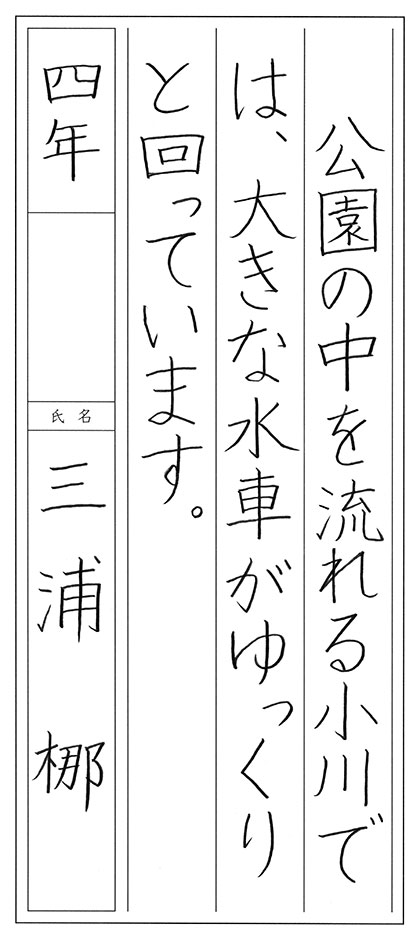 公園の中を流れる小川で
は、大きな水車がゆっくり
と回っています。
四年
氏名
三浦梛